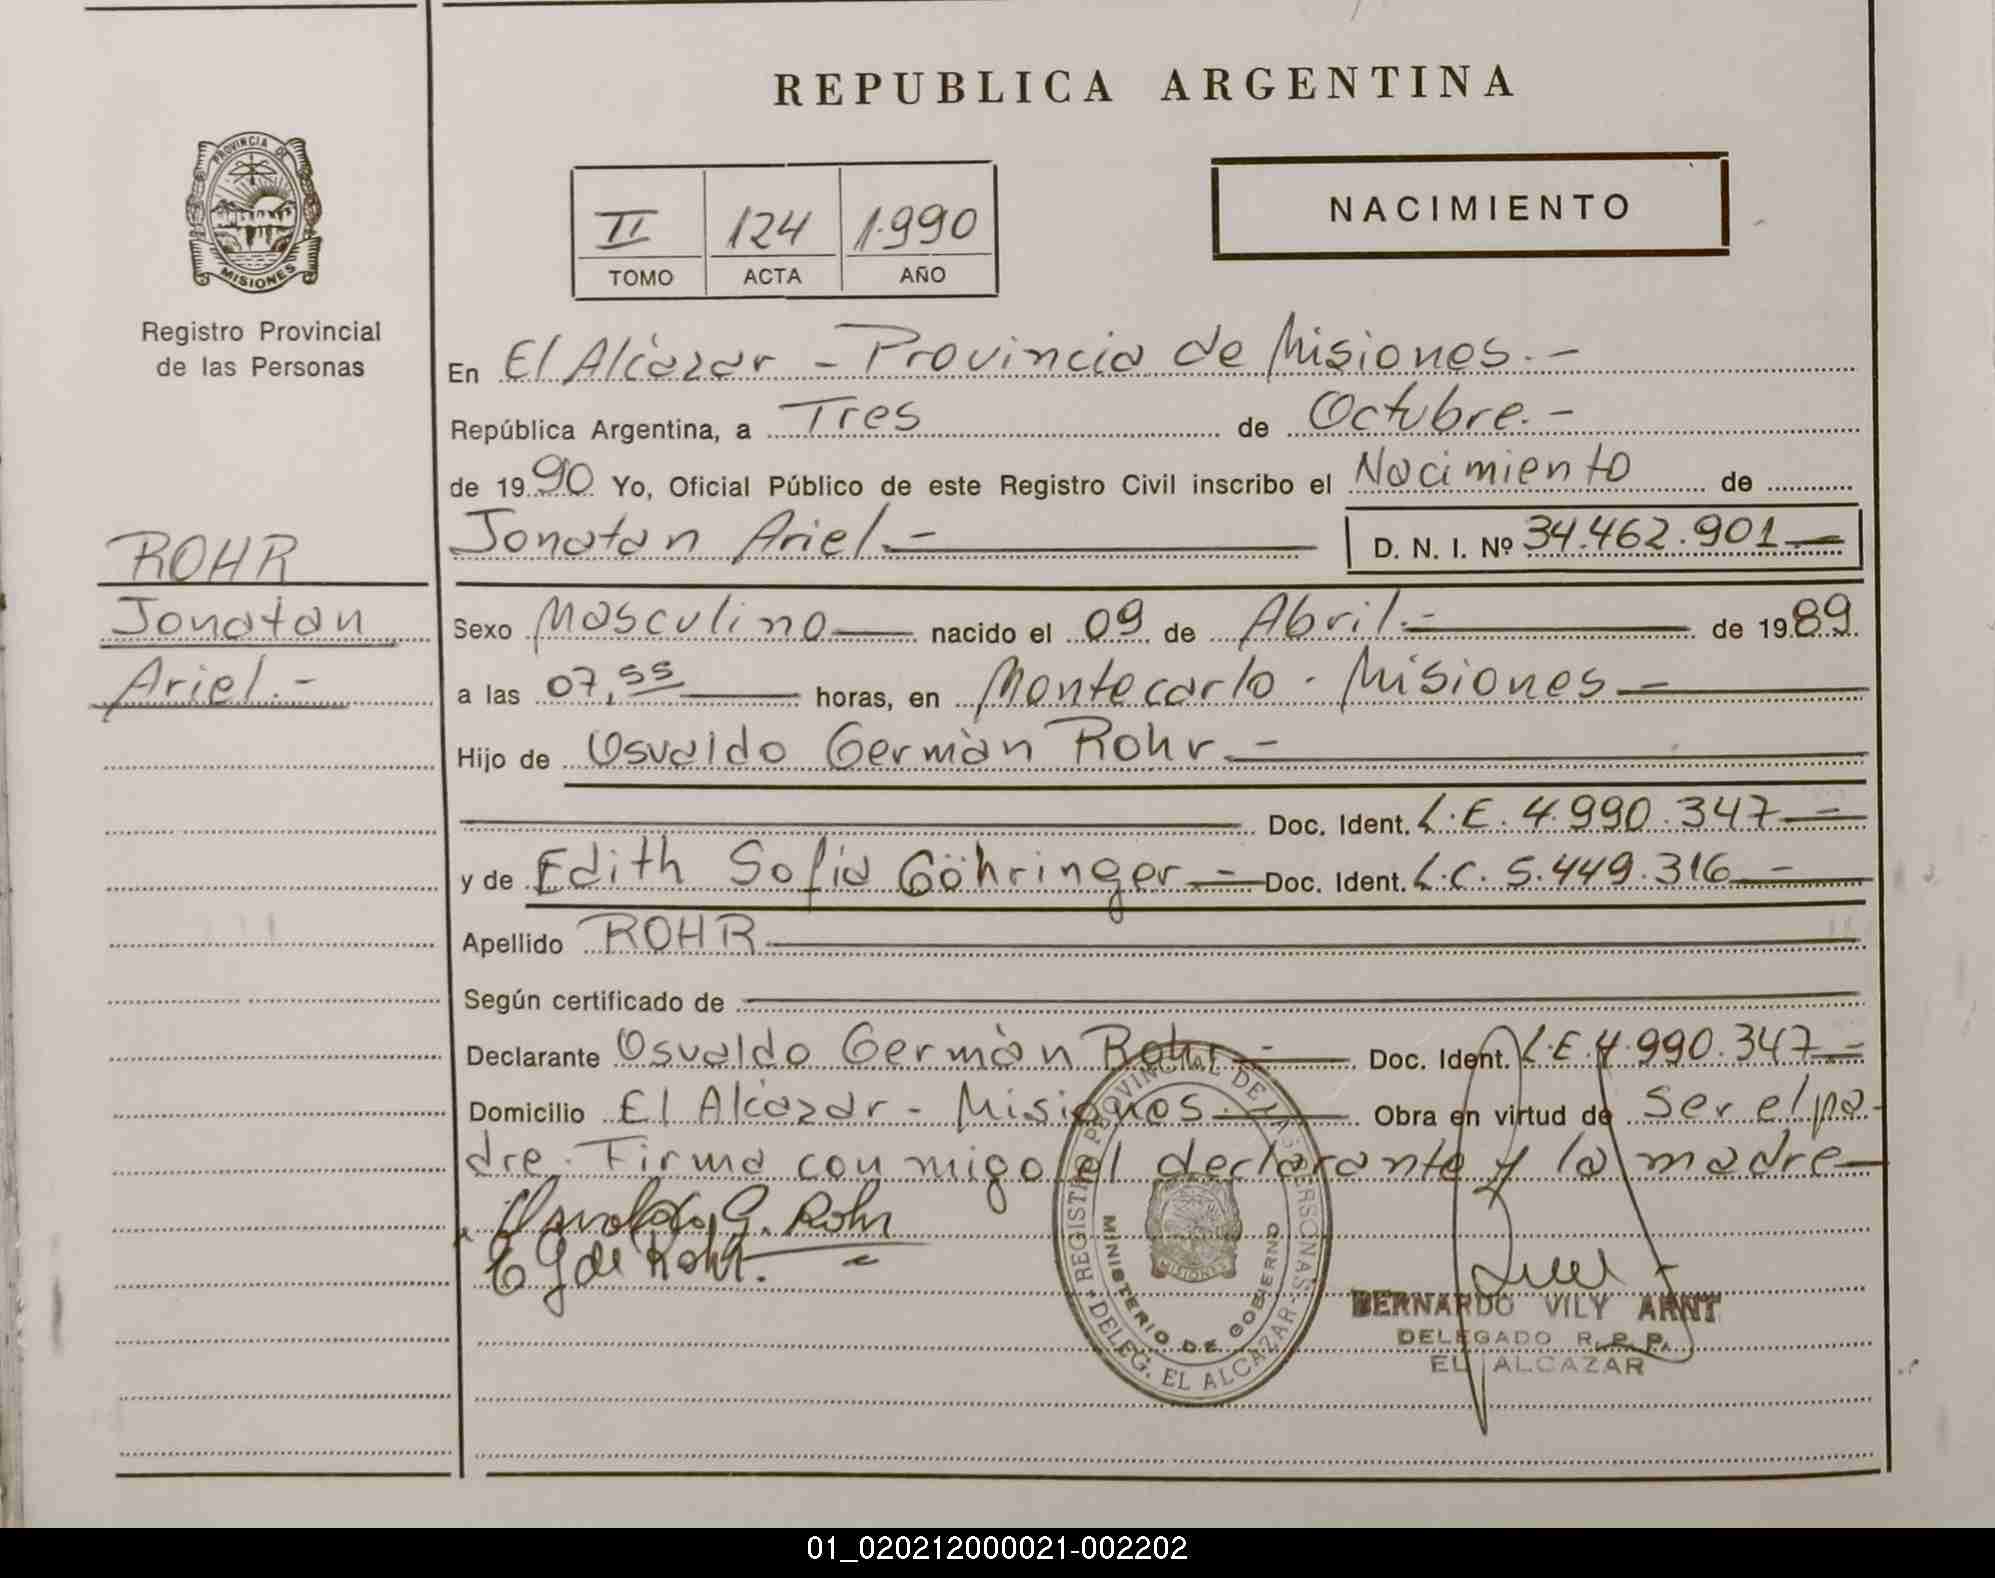 REPUBLICA ARGENTINA
PROVINCIA DE
MISIONES
Registro Provincial
de las Personas
II 124 1.990
TOMO ACTA AÑO
NACIMIENTO
En El Alcázar - Provincia de Misiones.-
República Argentina, a Tres de Octubre.-
de 1990 Yo, Oficial Público de este Registro Civil inscribo el Nacimiento de
Jonatan Ariel.- D. N. I. Nº 34.462.901
ROHR
Jonatan
Ariel.-
Sexo Masculino nacido el 09 de Abril.- de 1989.
a las 07,55 horas, en Montecarlo - Misiones -
Hijo de Osvaldo Germàn Rohr -
Doc. Ident. L.E. 4.990.347 -
y de Edith Sofia Göhringer - Doc. Ident. L.C. 5.449.316 -
Apellido ROHR
Según certificado de
Declarante Osvaldo Germàn Rohr - Doc. Ident. L.E. 4.990.347 -
Domicilio El Alcázar - Misiones.- Obra en virtud de Ser el pa-
dre. Firma con migo el declarante y la madre
Osvaldo G. Rohr
E G de Rohr.
REGISTRO PROVINCIAL DE LAS PERSONAS
MINISTERIO DE GOBIERNO
MISIONES
DELEG. EL ALCAZAR
BERNARDO VILY ARNT
DELEGADO R. P. P.
EL ALCAZAR
01_020212000021-002202